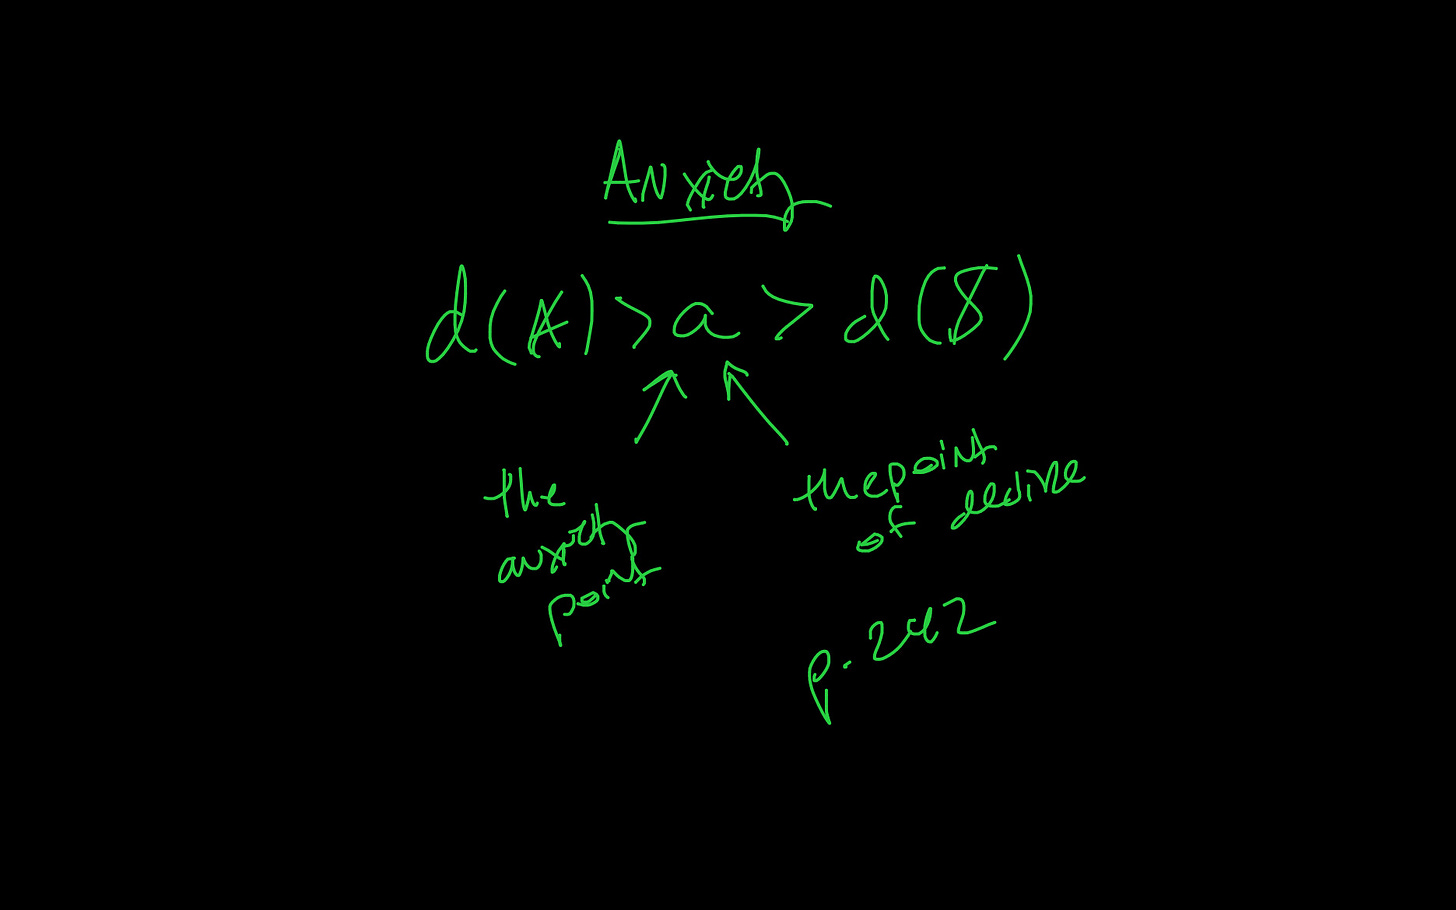 Anxiety
d(Ⱥ) > a > d($)
the
anxiety
point
the point
of desire
p. 262